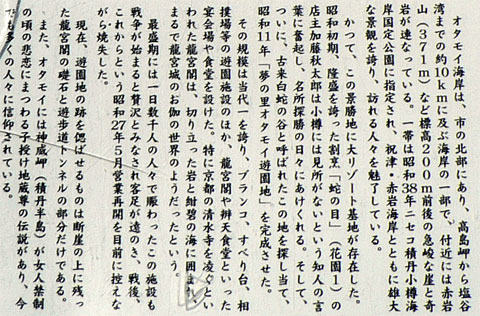 オタモイ海岸は、市の北部にあり、高島岬から塩谷
湾までの約10kmに及ぶ海岸の一部で、付近には赤岩
山(371m)など標高200m前後の急峻な崖と奇
岩が連なっている。一帯は昭和38年ニセコ積丹小樽海
岸国定公園に指定され、祝津・赤岩海岸とともに雄大
な景観を誇り、訪れる人々を魅了している。
かつて、この景勝地に大リゾート基地が存在した。
昭和初期、隆盛を誇った割烹「蛇の目」(花園1)の
店主加藤秋太郎は小樽には見所がないという知人の言
葉に奮起し、名所探勝の日々にあけくれる。そして、
ついに、古来白蛇の谷と呼ばれたこの地を探し当て、
昭和11年「夢の里オタモイ遊園地」を完成させた。
その規模は当代一を誇り、ブランコ、すべり台、相
撲場等の遊園施設のほか、龍宮閣や辨天食堂といった
宴会場や食堂を設けた。特に京都の清水寺を凌ぐとい
われた龍宮閣は、切り立った岩と紺碧の海に囲まれ
まるで龍宮城のお伽の世界のようだったという。
最盛期には一日数千人の人々で賑わったこの施設も
戦争が始まると贅沢とみなされ客足が遠のき、戦後、
これからという昭和27年5月営業再開を目前に控えな
がら焼失した。
現在、遊園地の跡を偲ばせるものは断崖の上に残っ
た龍宮閣の礎石と遊歩道トンネルの部分だけである。
また、オタモイには神威岬(積丹半島)が女人禁制
の頃の悲恋にまつわる子授け地蔵尊の伝説があり、今
でも多くの人々に信仰されている。